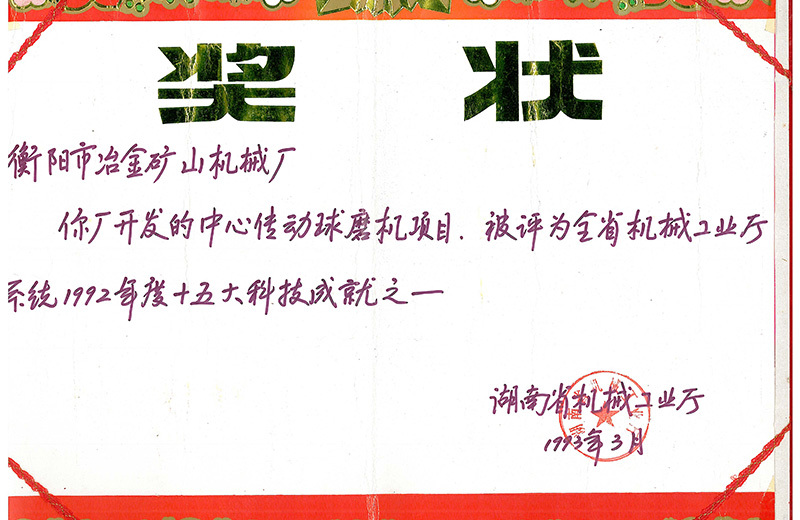 奖状
衡阳市冶金矿山机械厂
你厂开发的中心传动球磨机项目.被评为全省机械工业厅
系统1992年度十五大科技成就之一
湖南省机械工业厅
1993年3月